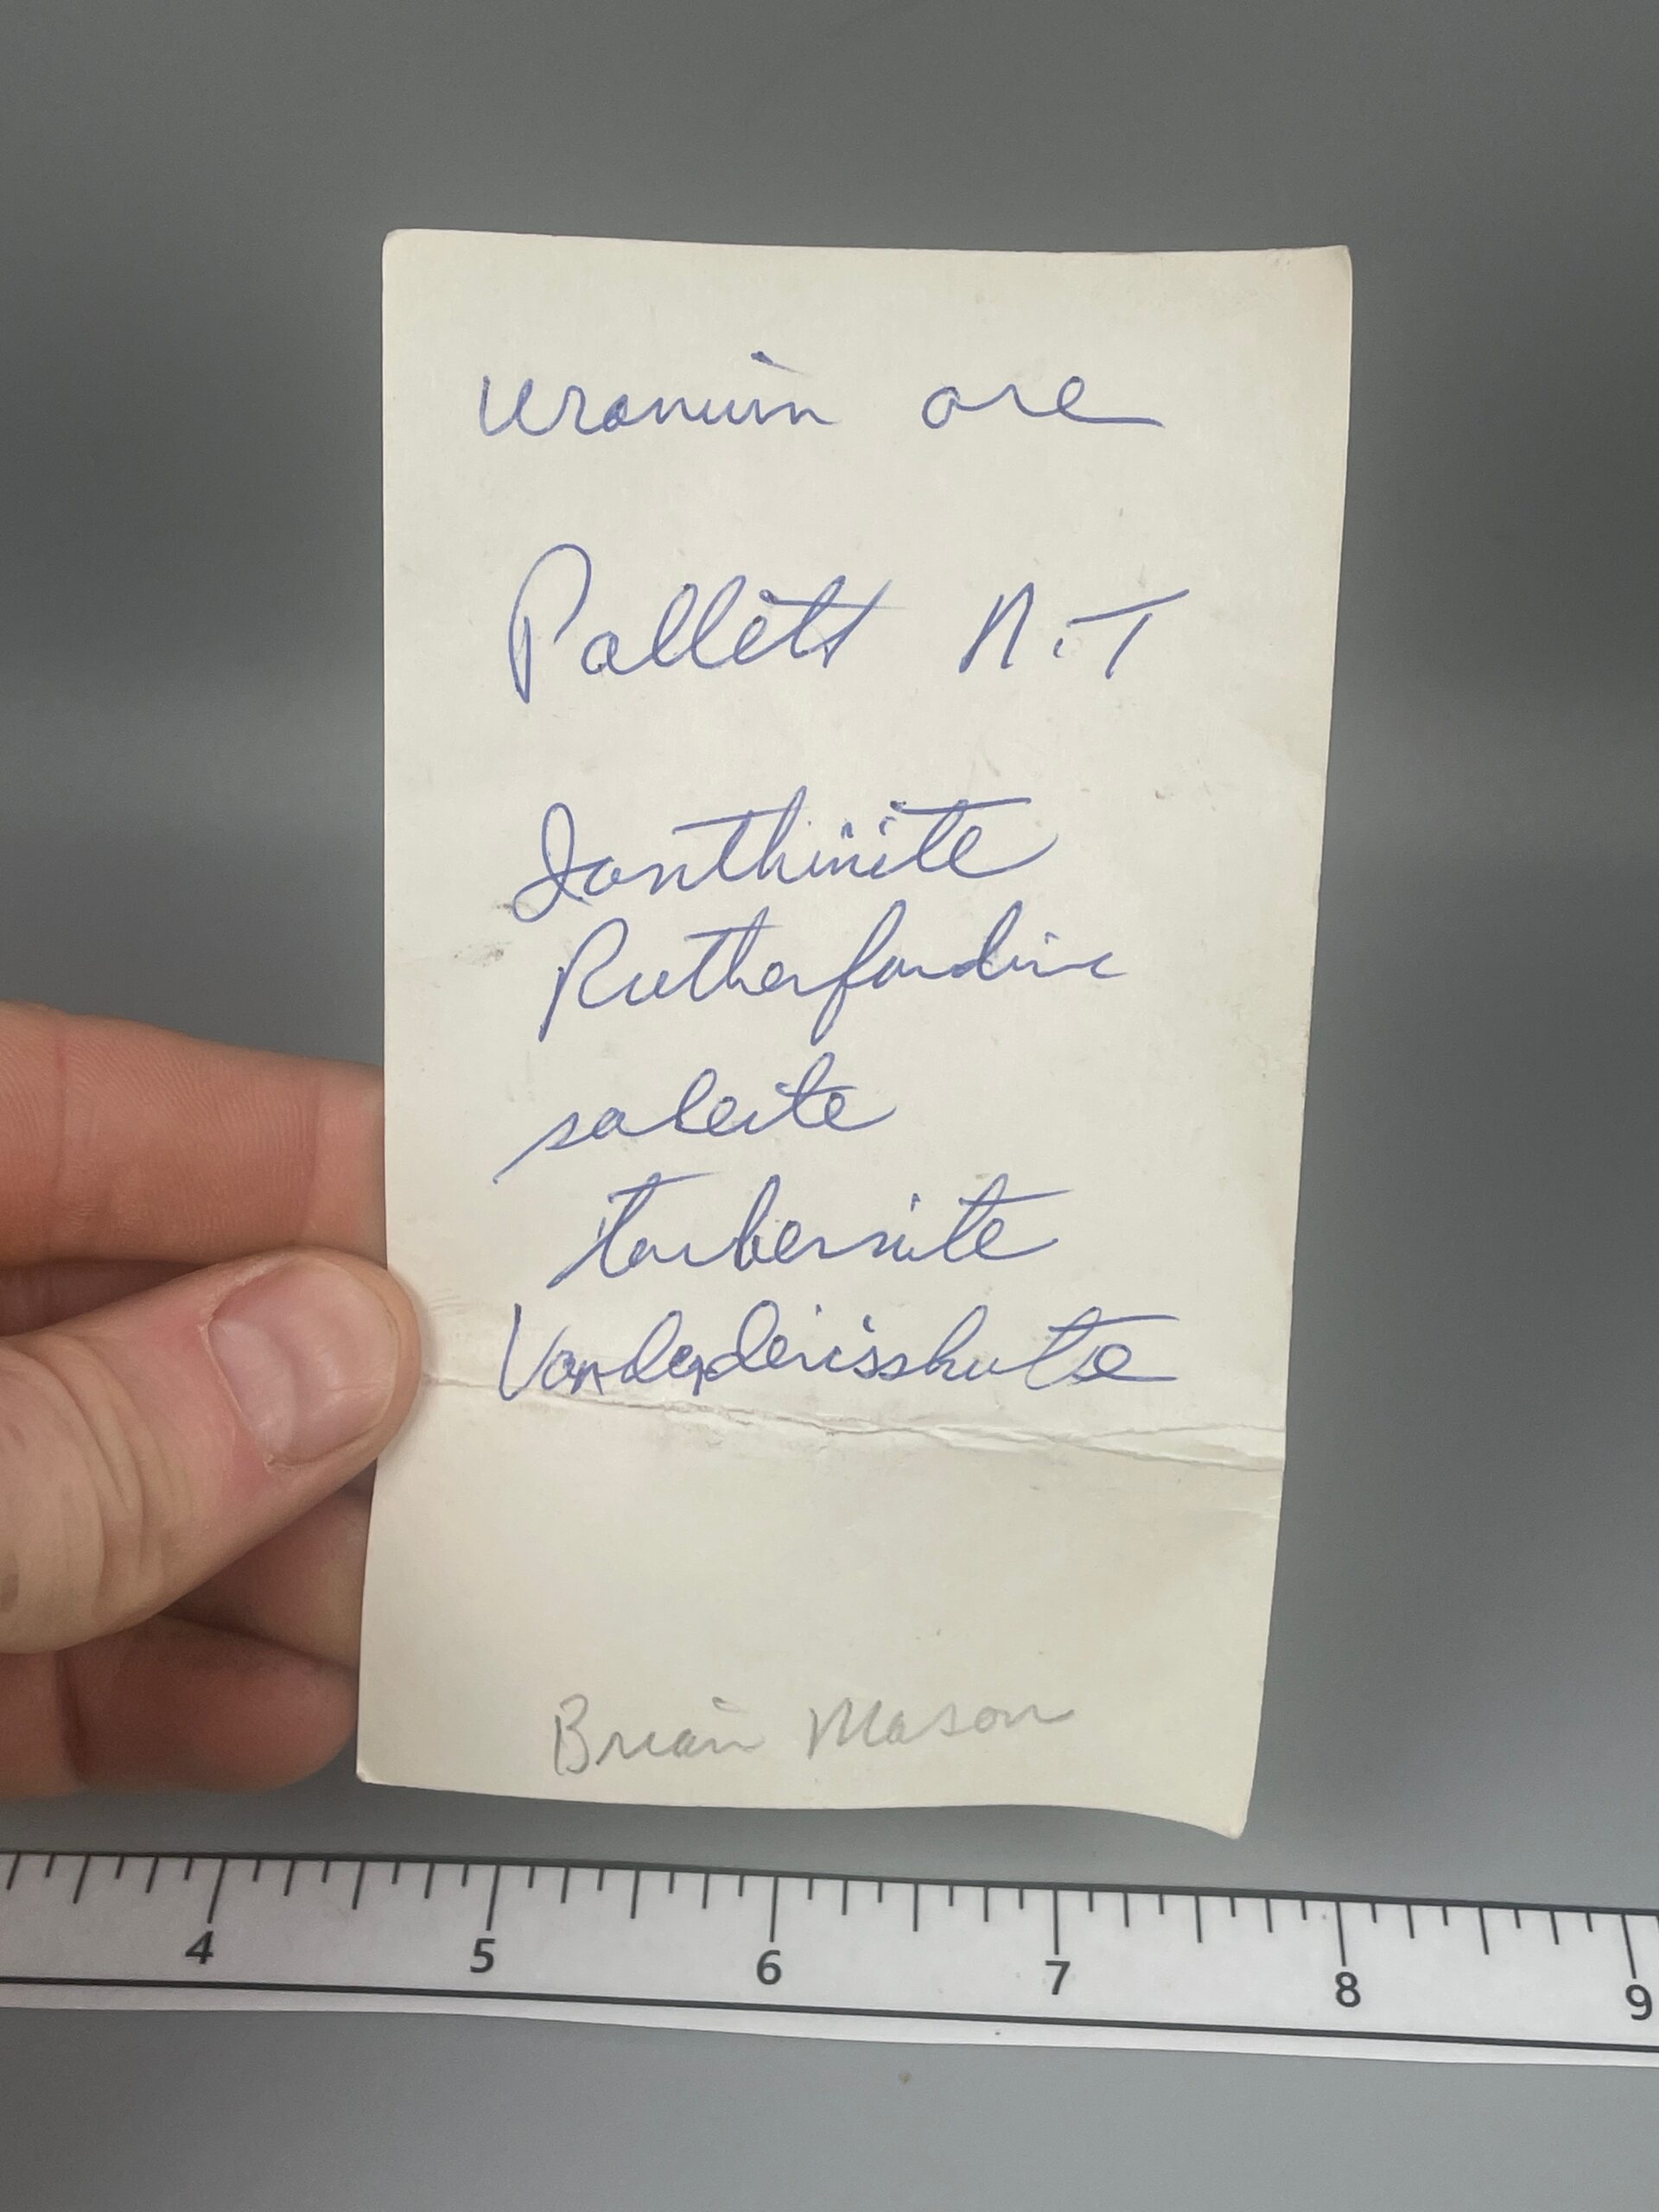 Uranium ore
Pallett N.T
Ianthinite
Rutherfordine
saleite
torbernite
Vandendriesscheite
Brian Mason
4 5 6 7 8 9